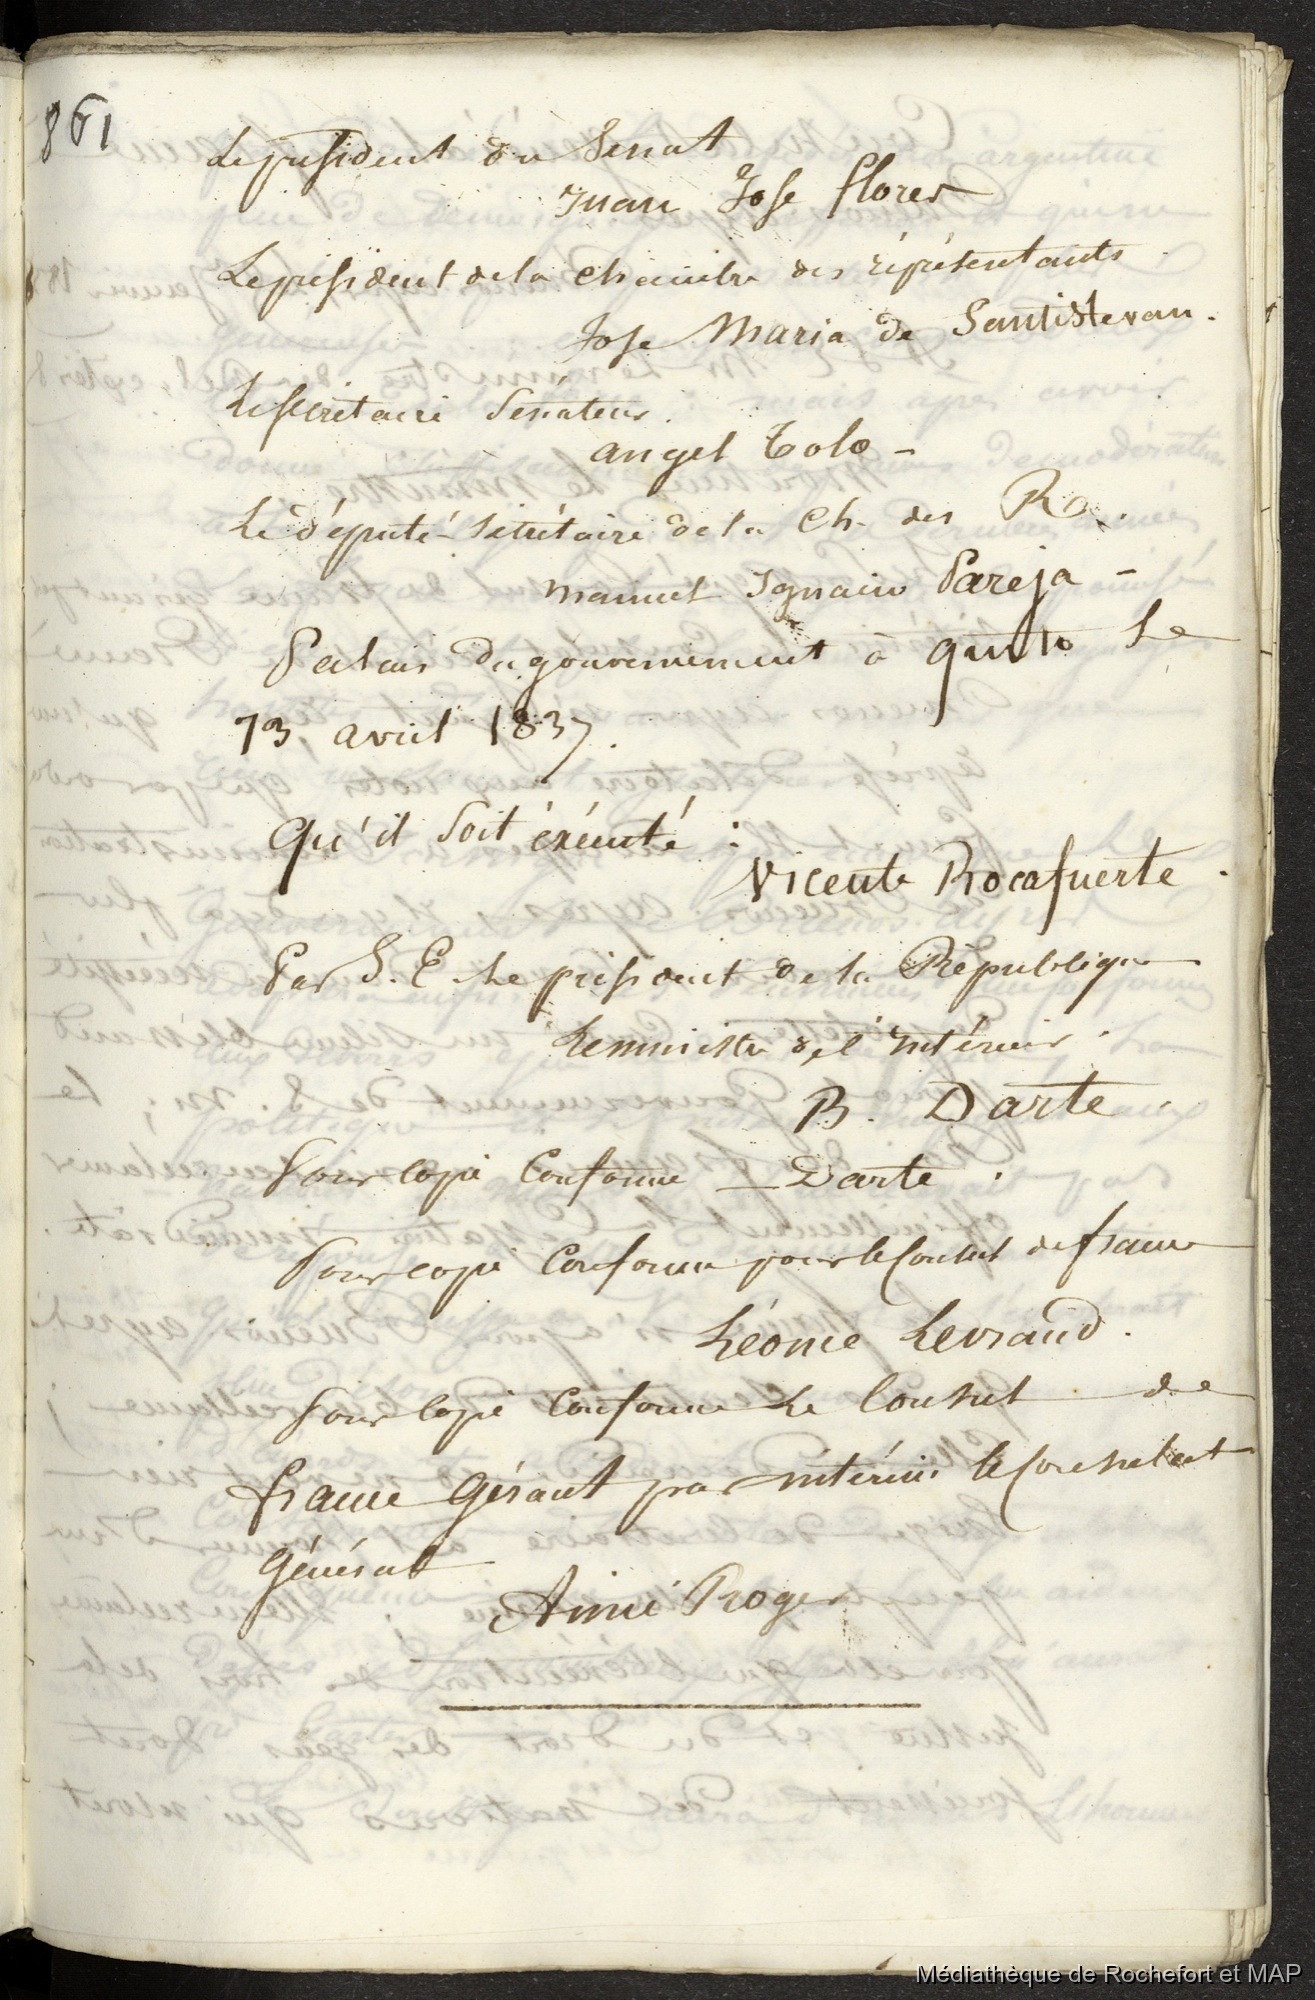 861
Le président du Senat
Juan Jose flores
Le président de la Chambre des réprésentants.
Jose Maria de Santistevan.
Le secrétaire Sénateur.
angel Tolo -
Le député-Secrétaire de la Ch. des R.
manuel Ignacio Pareja -
Palais du gouvernement à quito Le
13 avril 1837.
Qu'il soit éxécuté :
Vicente Rocafuerte.
Par S. E. Le président de la République
Le ministre de l'intérieur.
B. Darte.
Pour copie Conforme - Darte.
Pour copie Conforme pour le Consul de france
Léonce Levraud.
Pour Copie Conforme Le Consul de
france Gérant par intérim le Consulat
Général
Aimé Roger
Médiathèque de Rochefort et MAP